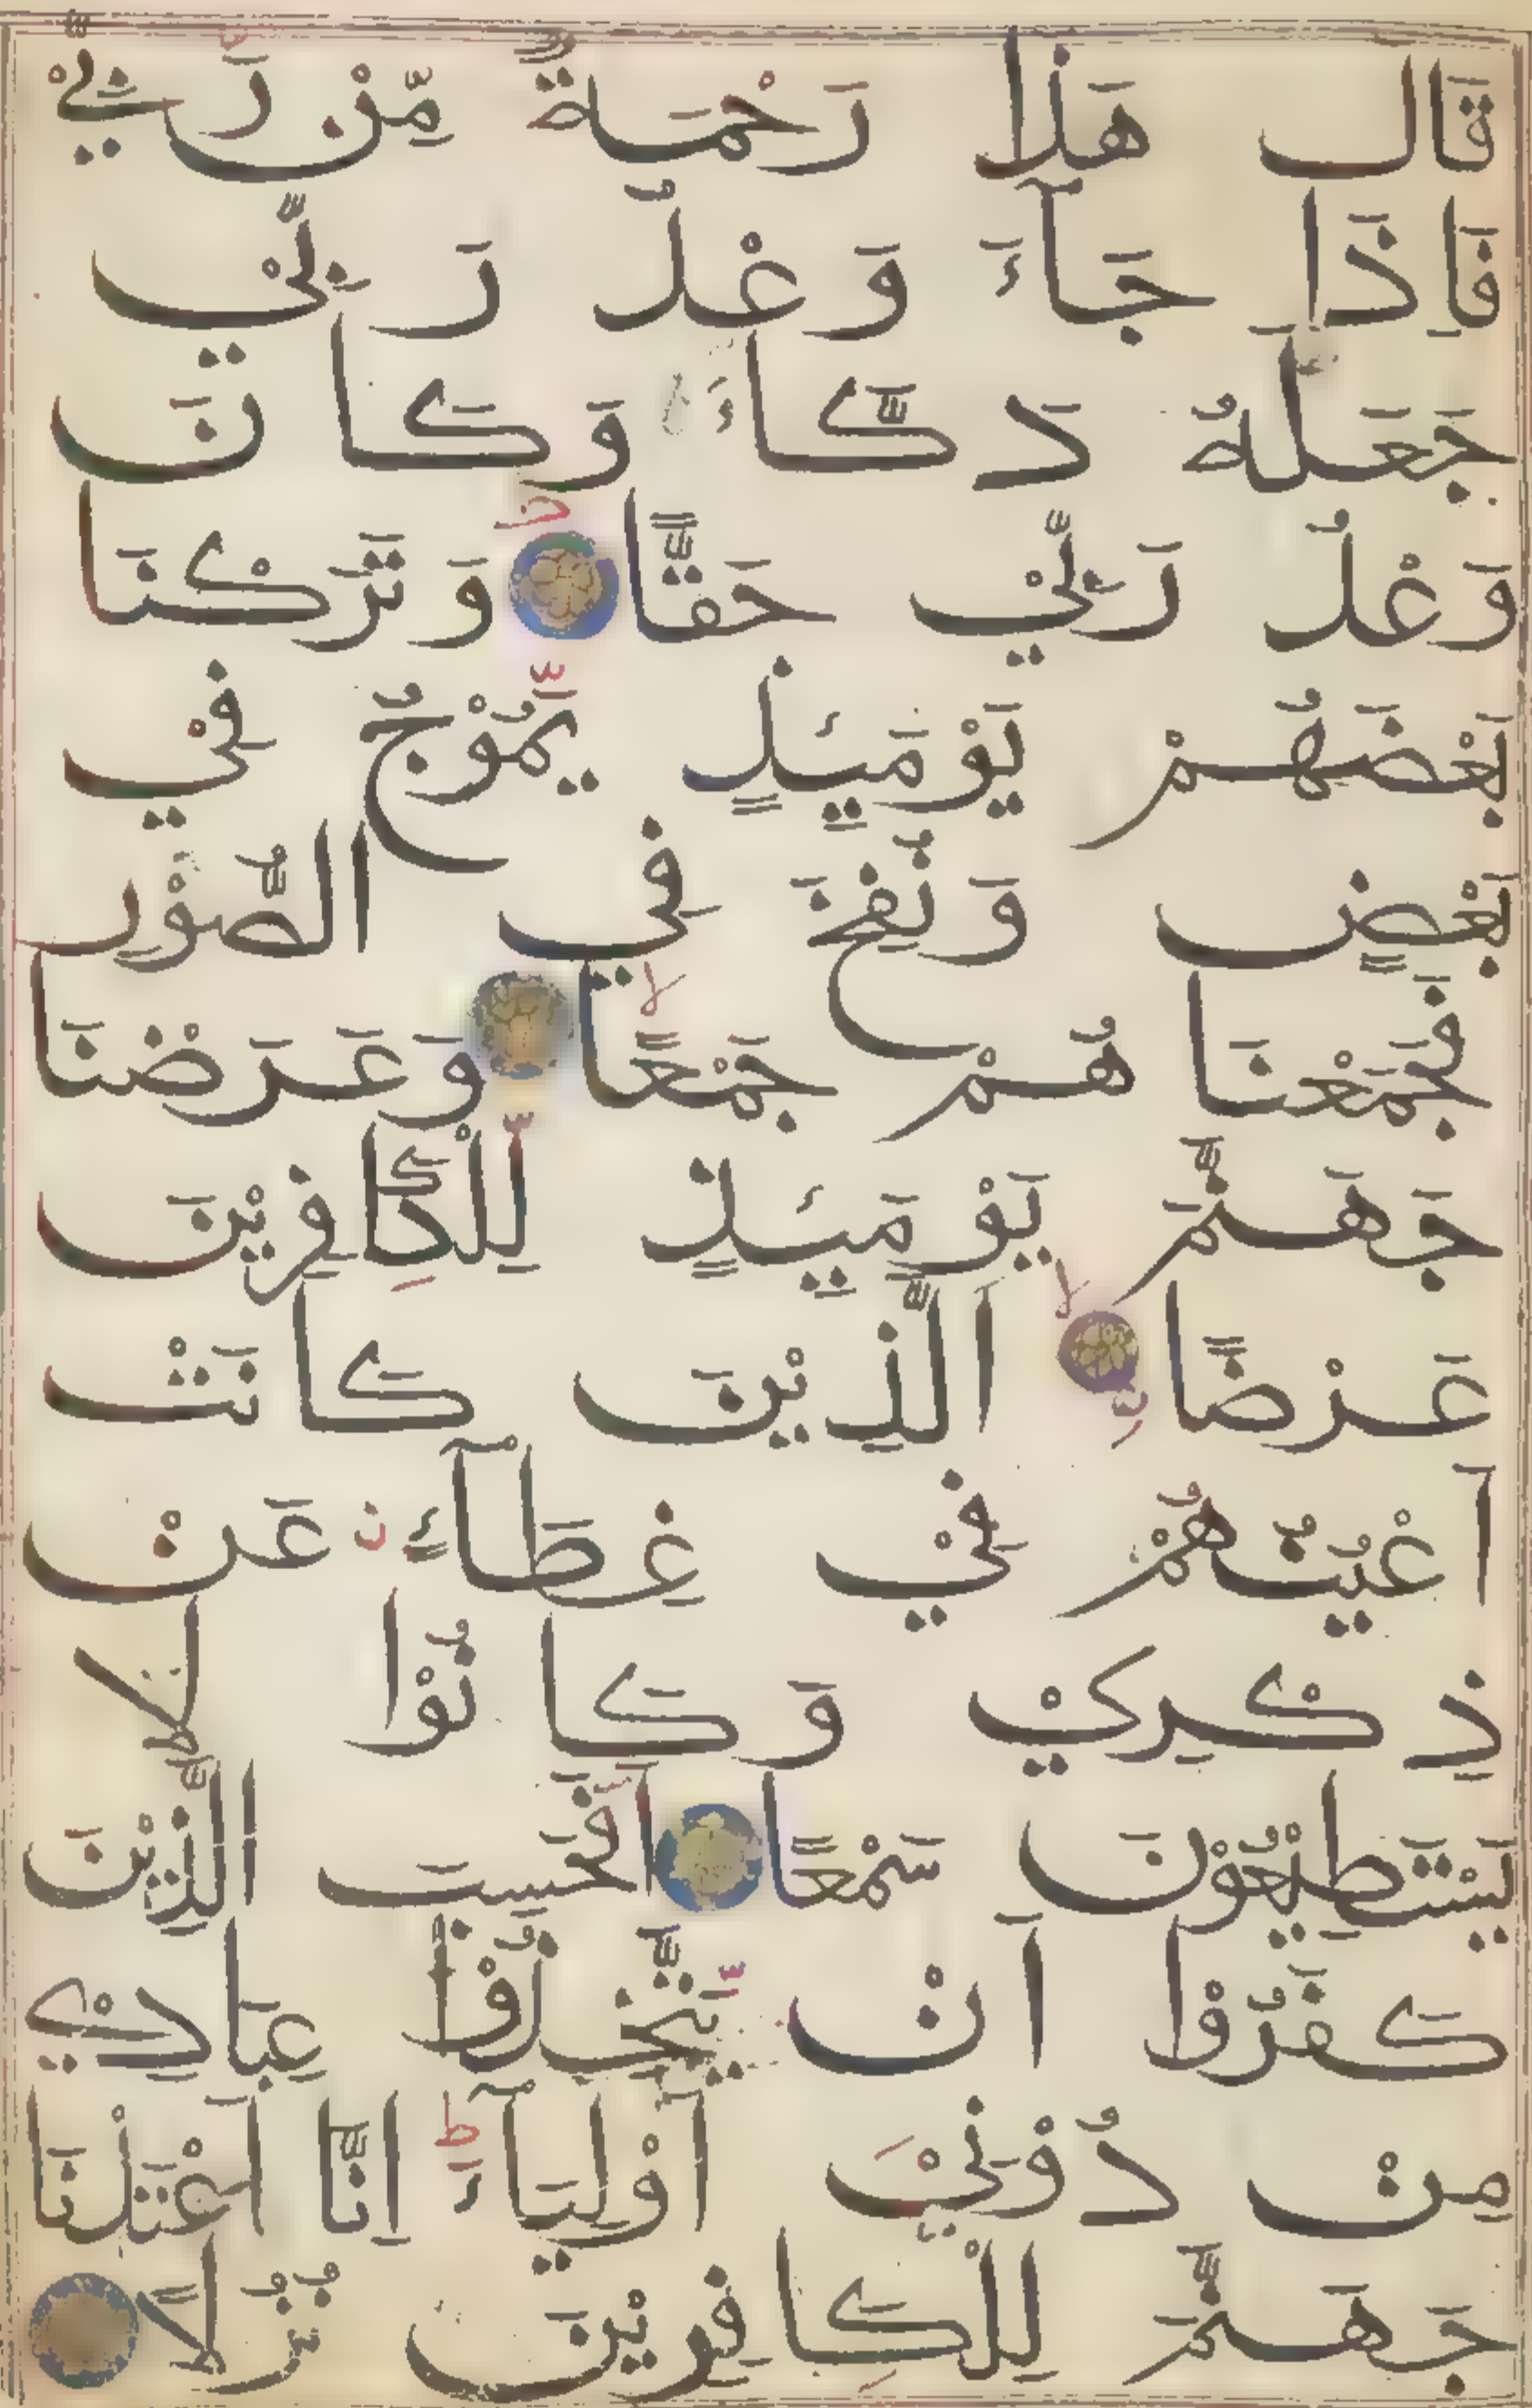 قَالَ هَذَا رَحْمَةٌ مِّنْ رَّبِّيْ
فَاِذَا جَآءَ وَعْدُ رَبِّيْ
جَعَلَهُ دَكَّاءَ وَكَانَ
وَعْدُ رَبِّيْ حَقًّا وَتَرَكْنَا
بَعْضَهُمْ يَوْمَئِذٍ يَّمُوْجُ فِيْ
بَعْضٍ وَنُفِخَ فِي الصُّوْرِ
فَجَمَعْنَا هُمْ جَمْعًا وَعَرَضْنَا
جَهَنَّمَ يَوْمَئِذٍ لِّلْكَافِرِيْنَ
عَرْضًا الَّذِيْنَ كَانَتْ
اَعْيُنُهُمْ فِيْ غِطَآءٍ عَنْ
ذِكْرِيْ وَكَانُوْا لَا
يَسْتَطِيْعُوْنَ سَمْعًا اَفَحَسِبَ الَّذِيْنَ
كَفَرُوْا اَنْ يَّتَّخِذُوْا عِبَادِيْ
مِنْ دُوْنِيْ اَوْلِيَآءَ اِنَّا اَعْتَدْنَا
جَهَنَّمَ لِلْكَافِرِيْنَ نُزُلًا